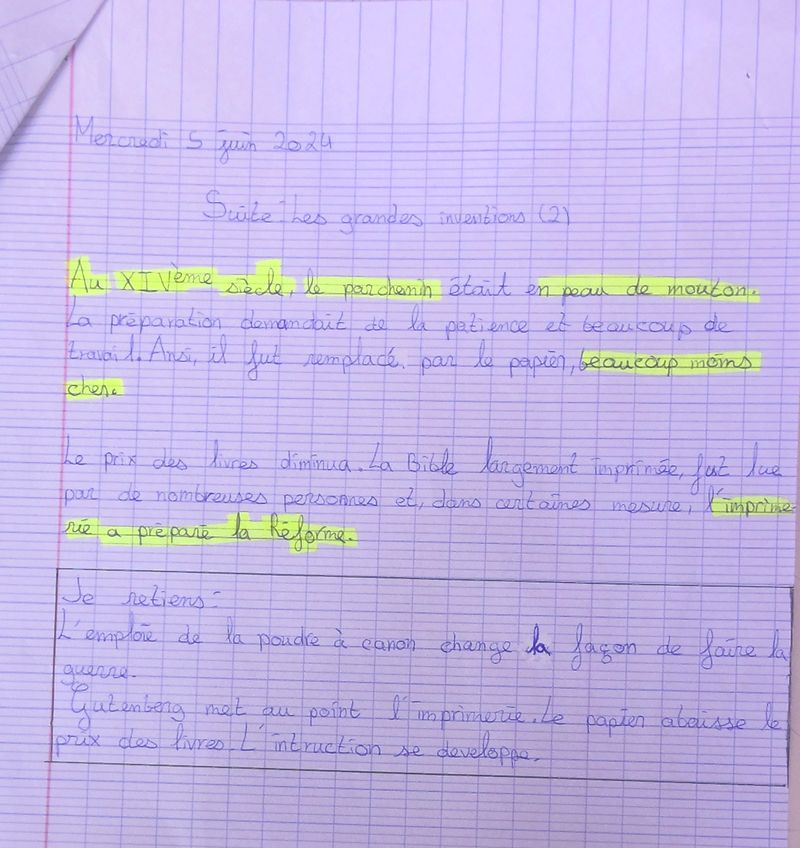 Mercredi 5 juin 2024
Suite: Les grandes inventions (2)
Au XIVème siècle, le parchemin était en peau de mouton.
La préparation demandait de la patience et beaucoup de
travail. Ansi, il fut remplacé par le papier, beaucoup moins
cher.
Le prix des livres diminua. La Bible largement imprimée, fut lue
par de nombreuses personnes et, dans certaines mesure, l'imprime-
rie a préparé la Réforme.
Je retiens:
L'emploie de la poudre à canon change la façon de faire la
guerre.
Gutenberg met au point l'imprimerie. Le papier abaisse le
prix des livres. L'intruction se developpe.